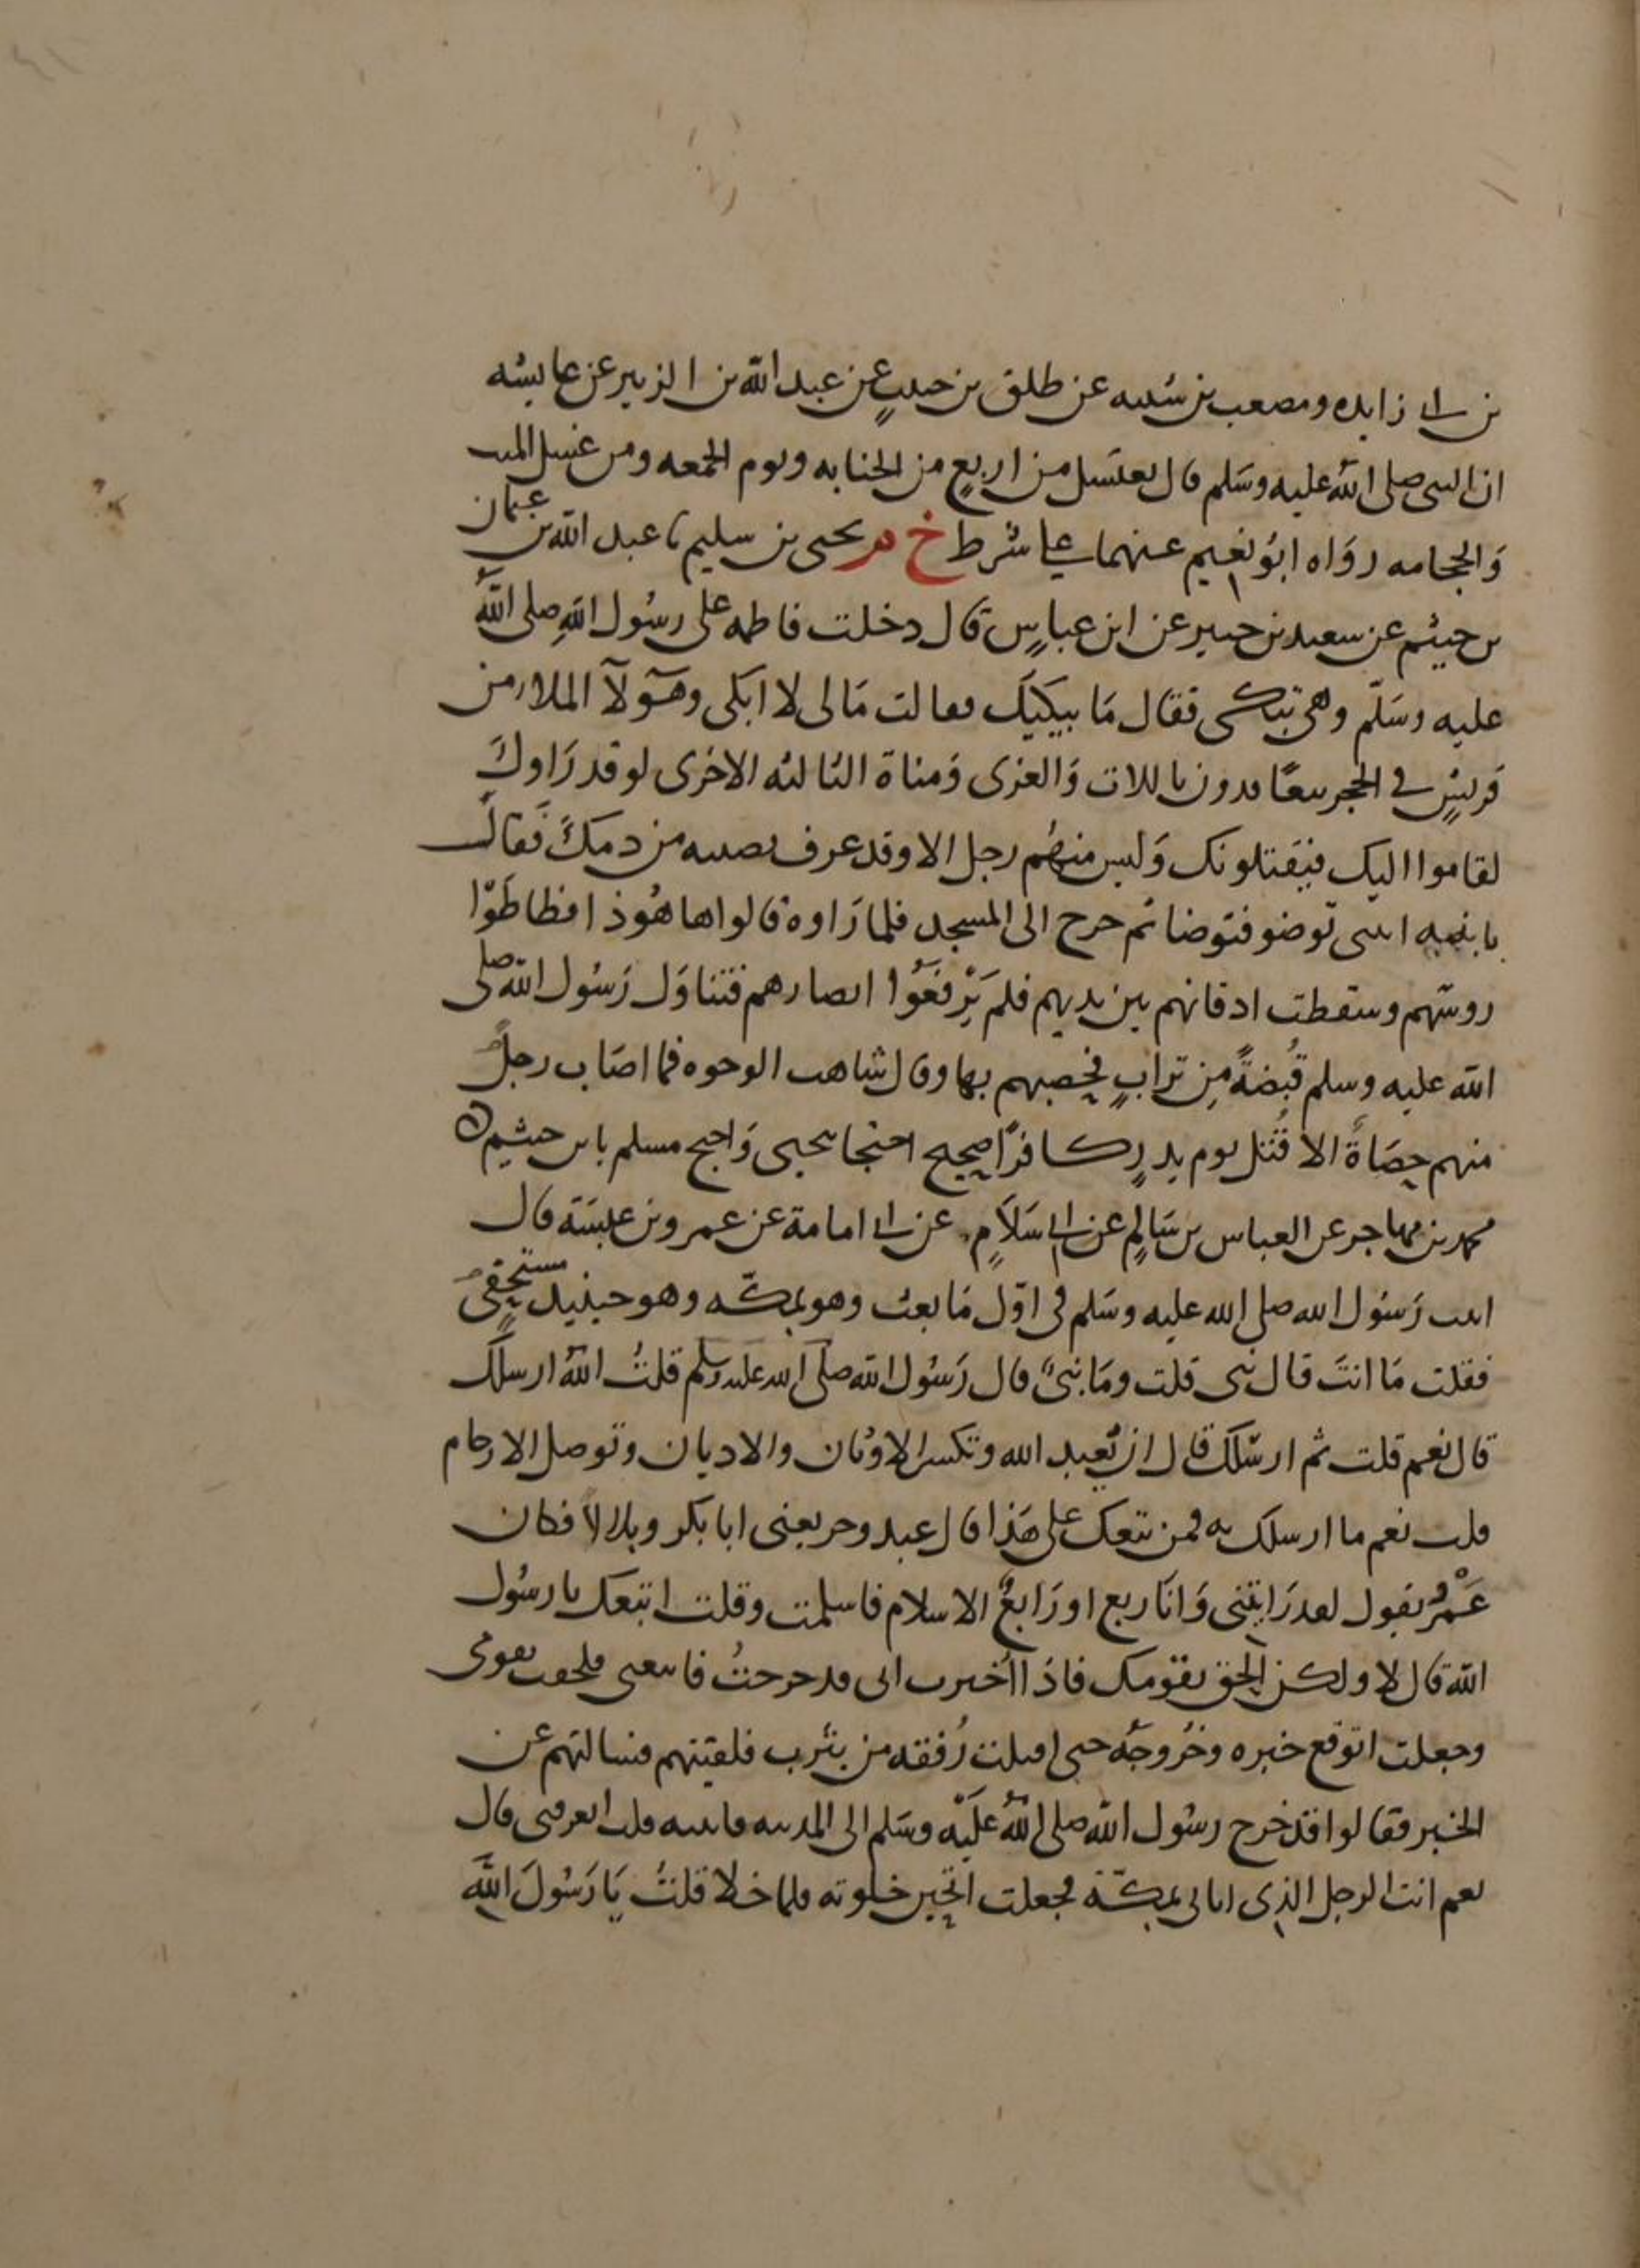 بن ابي زايده ومصعب بن شيبه عن طلق بن حبيبٍ عن عبد الله بن الزبير عن عايشه
ان النبي صلى الله عليه وسَلم قال يغتسل من اربعٍ من الجنابه ويوم الجمعه ومن غسل الميت
وَالحجامه روَاه ابوُ نعيم عنهما على شرط خ م يحيى بن سليم نا عبد الله بن عثمان
بن خيثم عن سعيد بن جبير عن ابن عباسٍ قال دخلت فاطمه على رسُول اللهِ صلى اللهُ
عليه وسَلّم وهي تبكي فقال مَا يبكيكَ فقالت مَا لي لا ابكي وهؤلآ الملا من
قريشٍ في الحجر يتعاقدون باللات وَالعزى وَمناة الثالثه الاخرى لو قد رَاوكَ
لقاموا اليك فيقتلونك وَليس منهُم رجل الا وقد عرف نصيبه من دمكَ فَقالَ
يا بنيه ايتني توضو فتوضا ثم خرج الى المسجد فلما رَاوه قالوا ها هُوذ افطاطَوْا
روسَهم وسقطت اذقانهم بين يديهم فلم يَرْفعَوُا ابصارهم فتناوَل رَسُول الله صلى
الله عليه وسلم قُبضةً مِن ترابٍ فحصبهم بها وقال شاهت الوجوه فما اصَاب رجلًا
منهم حِصَاةً الا قُتل يوم بدرٍ كافرًا صحيح احتجا بيحيى وَاحتج مسلم بابن خيثم ن
محمد بن مهاجر عن العباس بن سَالمٍ عن ابي سَلاَمٍ عن ابي امامة عن عمرو بن عبسَة قال
اتيت رَسُول الله صلى الله عليه وسَلم في اوّل مَا بعث وهو بمكّه وهو حينيذ مستخفٍ
فقلت مَا انتَ قال نبي قلت ومَا نبيٌ قال رَسُول الله صلى الله عليه وسلم قلتُ اللهُ ارسلكَ
قال نعم قلت ثم ارسَلكَ قال ان تُعبد الله وتكسر الاوثان والاديان وتوصل الارحام
قلت نعم ما ارسلك به فمن تبعك على هَذا قال عبد وحر يعني ابا بكر وبلالاً فكان
عَمْرٌو يقول لقد رَايتني وَانَا ربع او رَابعُ الاسلام فاسلمت وقلت اتبعك يا رسُول
الله قال لا ولكن الحق بقومك فاذا اُخبرت اني قد خرجتُ فاتبعني فلحقت بقومي
وجعلت اتوقع خبره وخُروجَه حتى اقبلت رُفقه من يثرب فلقيتهم فسالتهم عن
الخبر فقالوا قد خرج رسُول الله صلى اللهُ عليْه وسَلم الى المدينه فاتيته قلت اتعرفني قال
نعم انت الرجل الذي اتاني بمكّة فجعلت اتحيّن خلوته فلما خلا قلتُ يَا رَسُولَ اللهِ